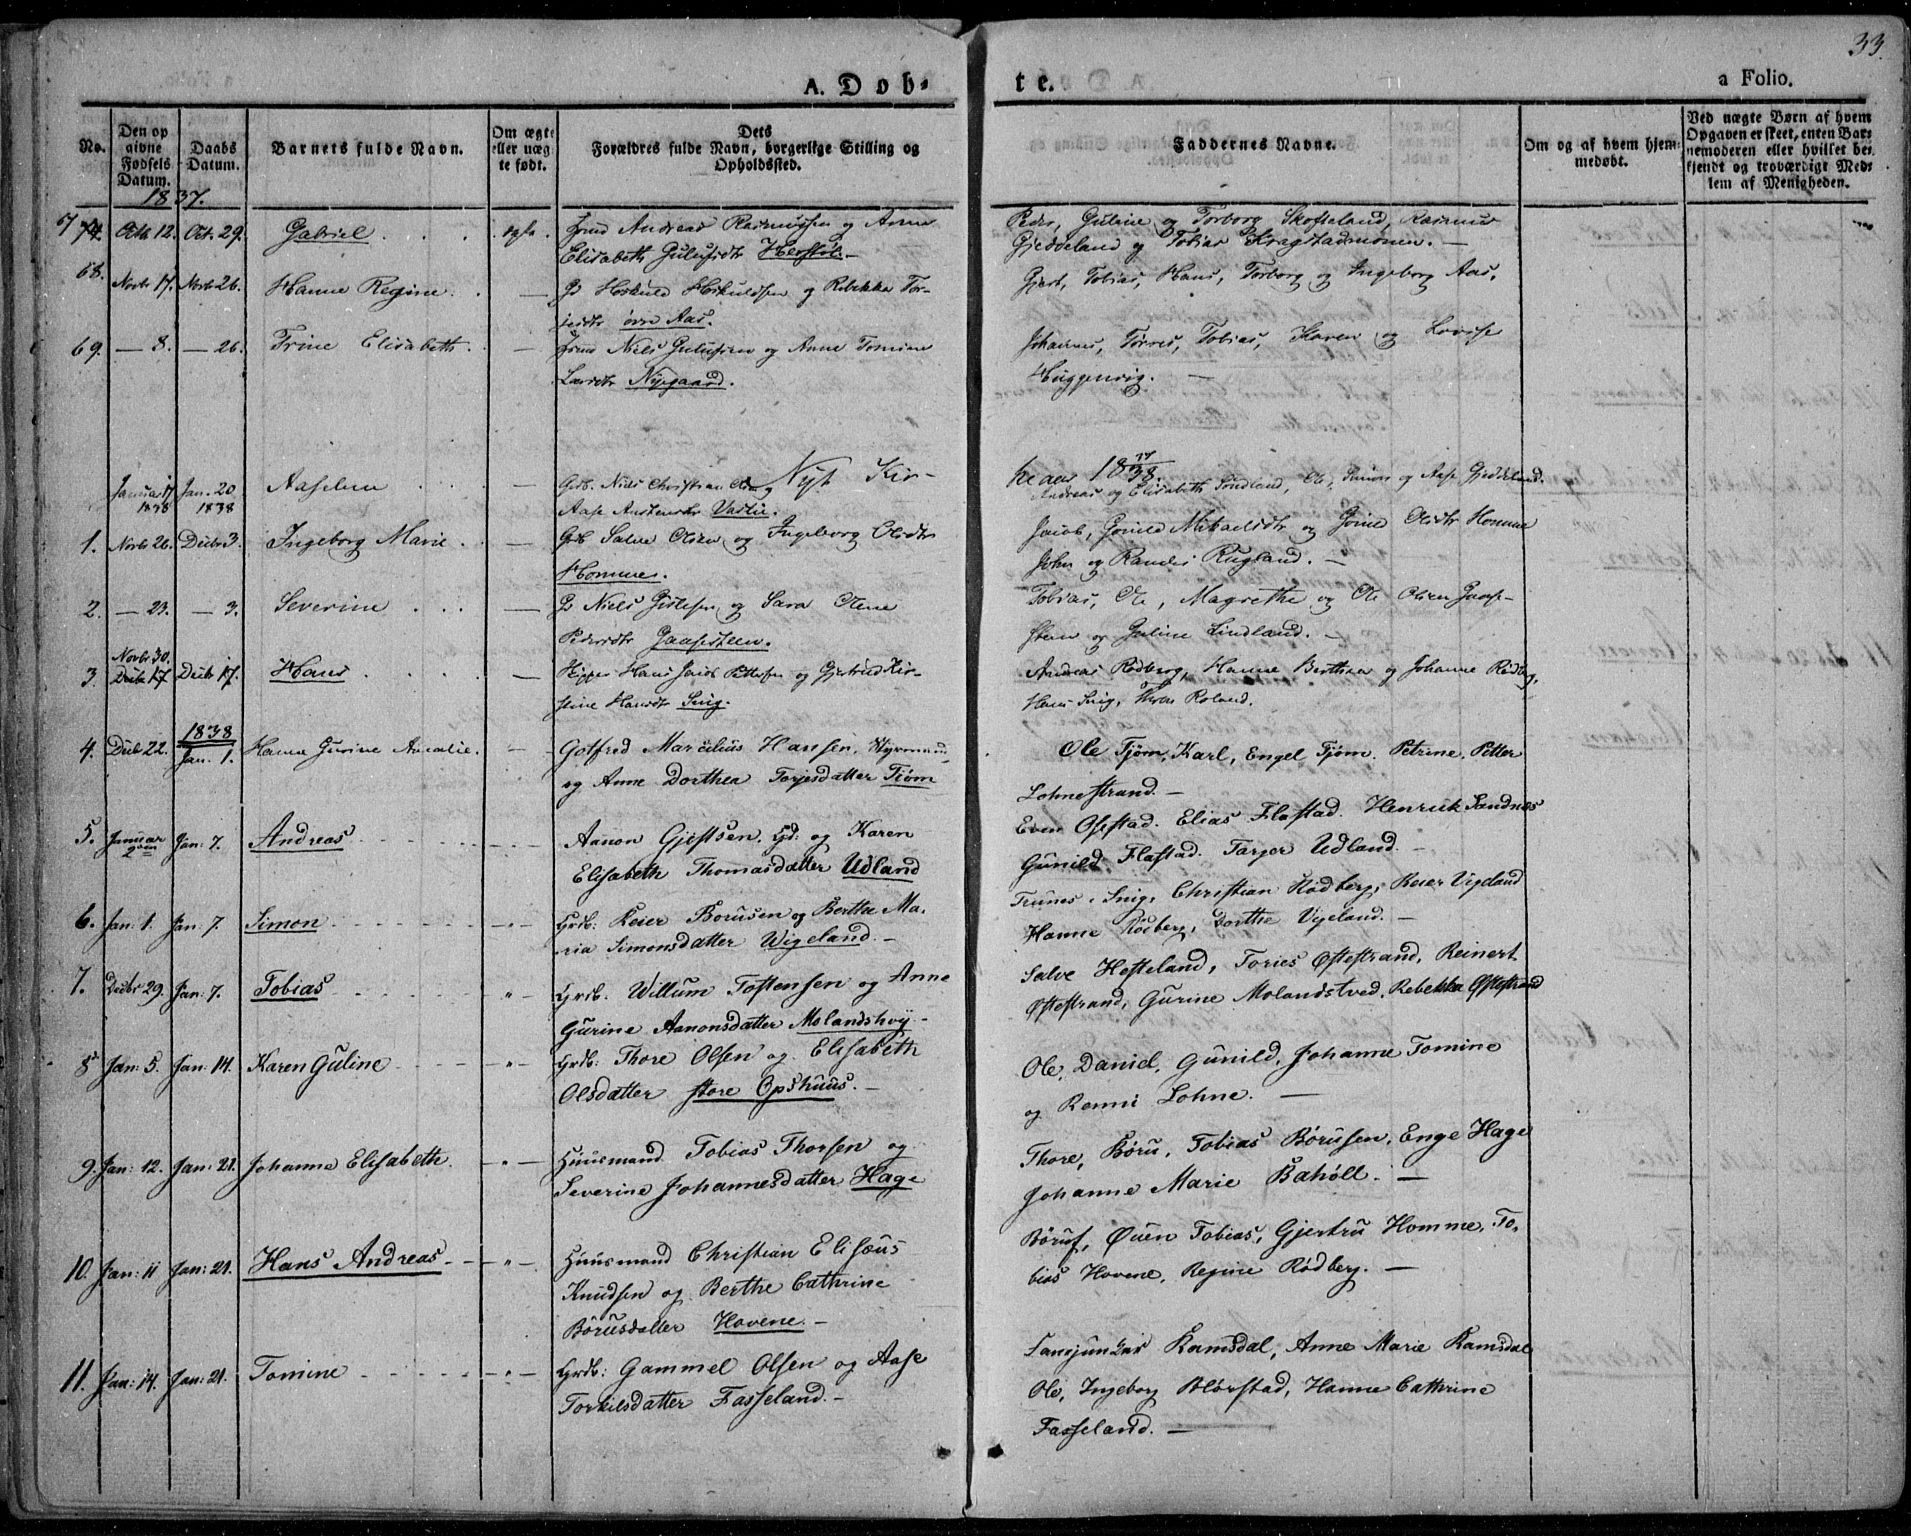 33.
A. Døb-
te.
a Folio.
No.
Den op
givne
Fødsels
Datum.
Daabs
Datum.
Barnets fulde Navn.
Om ægte
eller uæg
te født.
Dets
Forældres fulde Navn, borgerlige Stilling og
Opholdssted.
Faddernes Navne.
Om og af hvem hjem-
medøbt.
Ved uægte Børn af hvem
Opgaven er skeet, enten Bar-
nemoderen eller hvilket be-
kjendt og troværdigt Med-
lem af Menigheden.
1837.
Octb 12. Oct. 29. Gabriel
Andreas Rasmussen og Anne
Elisabeth Gulufsdtr
Peder, Guline og Torborg Skofteland, Rasmus
Gjeddeland og Tobias Kragstadmonen. —
68. Novbr 17. Novbr 26. Hanne Regine
— G Hskuld Hskuldsen og Rebekka Tor-
jesdtr øvre Aas.
Gjert, Tobias, Hans, Torborg og Ingeborg Aas.
69. — 8. — 26. Trine Elisabeth
— Niels Gulufsen og Anne Tomine
Larsdtr Nygaard.
Johannes, Torres, Tobias, Karen og Lovise
Huggenvig. —
Nyt Kir-
ke aar 18 37/38.
Januar 17 1838 Jan. 20 1838 Aaselene
— Grdb. Niels Christian Ols og
Aase Austensdtr Vatlie.
Andreas og Elisabeth Sindland, Ole, Simon og Aase Gjeddeland.
1. Novbr 26. Decbr 3. Ingeborg Marie
— Grdb Salve Olsen og Ingeborg Olsdtr
Homme.
Jacob, Gonild Mikaelsdtr og Gorine Olsdtr Homme
John og Randi Rugland. —
2. — 23. — 3. Severine
— G Niels Gislesen og Sara Olene
Pedersdtr Gaasesteen.
Tobias, Ole, Magrethe og Ole Olsen Gaase-
steen og Guline Lindland. —
3. Novbr 30. Decbr 17 Decbr 17. Hans
— Skipper Hans Jacob Pettersen og Gjertrud Kir-
stine Hansdtr Snig.
Andreas Rødberg, Hanne Berthea og Johanne Rødberg,
Hans Snig, Thron Roland.
4. Decbr 22. 1838 Jan. 1. Hanna Gurine Amalie.
— Gotfred Marcilius Hansen, Styrmand,
og Anne Dorthea Torjesdatter Tjøm
Ole Tjøm, Karl, Engel Tjøm. Petrine, Petter
Lohnestrand. —
5. Januar 2den Jan: 7. Andreas
Aanon Gjestsen, Gd: og Karen
Elisabeth Thomasdatter Udland
Even Osestad. Elias Flastad. Henrik Sandnæs
Gunild Flastad. Tarjer Udland. —
6. Jan: 1. Jan: 7. Simon
Grdb: Reier Børusen og Bertha Ma-
ria Simonsdatter Wigeland. —
Trunes i Snig, Christian Rødberg, Reier Vigeland
Hanne Rødberg, Dorthe Vigeland. —
7. Decbr 29. Jan: 7. Tobias
Grdb. Willum Tostensen og Anne
Gurine Aanonsdatter Molandshvy
Salve Hesteland, Tories Oftestrand, Reinert
Oftestrand, Gurine Molandstved, Rebekka Oftestrand
8 Jan: 5. Jan: 14. Karen Guline
Grdb. Thore Olsen og Elisabeth
Olsdatter store Opshuus. —
Ole, Daniel, Gunild, Johanne Tomine
og Renni Lohne. —
9. Jan: 12. Jan: 21. Johanna Elisabeth.
Huusmand Tobias Thorsen og
Severine Johannesdatter Hage
Thore, Børu, Tobias Børusen, Enge Hage
Johanne Marie Bahøll. —
10. Jan: 11 Jan: 21. Hans Andreas
Huusmand Christian Elisæus
Knudsen og Berthe Cathrine
Børusdatter Hovene. —
Børuf, Ouen Tobias, Gjertru Homme, To-
bias Hovene, Regine Rødberg. —
11. Jan: 14. Jan: 21. Tomine
Grdb: Gammel Olsen og Aase
Torkilsdatter Fasseland. —
Ramsdal, Anne Marie Ramsdal
Ole, Ingeborg Blørstad, Hanne Cathrine
Fasseland. —